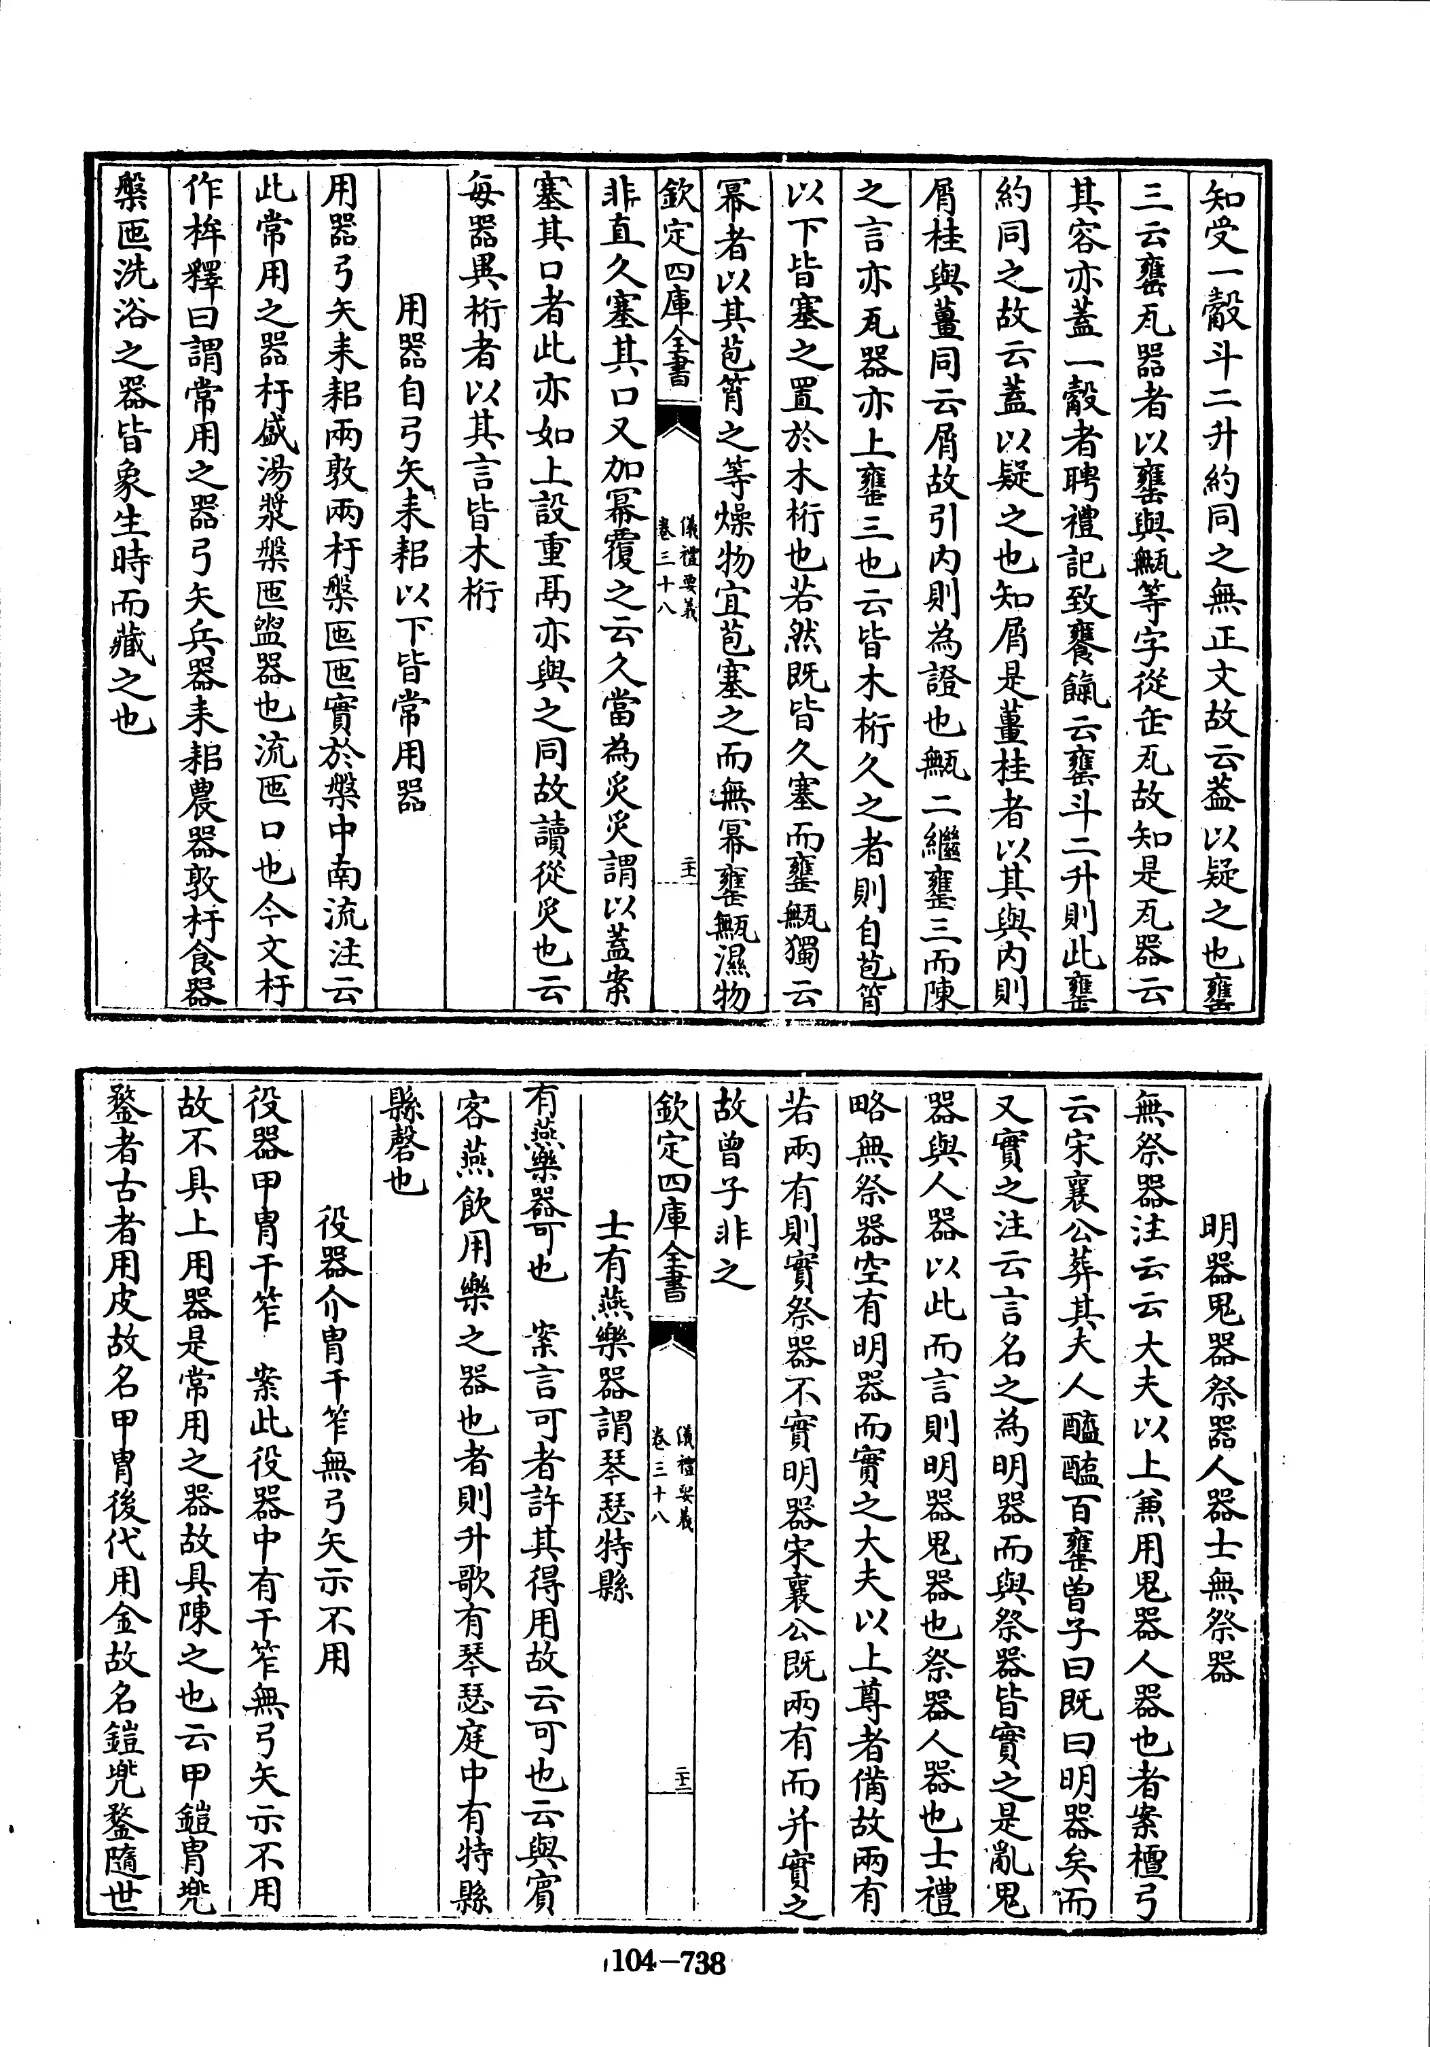 知受一觳斗二升約同之無正文故云蓋以疑之也罋
三云罋瓦器者以罋與甒等字從缶瓦故知是瓦器云
其容亦蓋一觳者聘禮記致饔餼云罋斗二升則此甕
約同之故云蓋以疑之也知屑是薑桂者以其與内則
屑桂與薑同云屑故引内則為證也甒二繼甕三而陳
之言亦瓦器亦上甕三也云皆木桁久之者則自苞筲
以下皆塞之置於木桁也若然既皆久塞而甕甒獨云
幂者以其苞筲之等燥物宜苞塞之而無幂甕甒濕物
欽定四庫全書
儀禮要義
卷三十八
二十
非直久塞其口又加幂覆之云久當為灸灸謂以蓋案
塞其口者此亦如上設重鬲亦與之同故讀從灸也云
每器異桁者以其言皆木桁
用器自弓矢耒耜以下皆常用器
用器弓矢耒耜兩敦兩杅槃匜匜實於槃中南流注云
此常用之器杅盛湯漿槃匜盥器也流匜口也今文杅
作桙釋曰謂常用之器弓矢兵器耒耜農器敦杅食器
槃匜洗浴之器皆象生時而藏之也
明器鬼器祭器人器士無祭器
無祭器注云云大夫以上兼用鬼器人器也者案檀弓
云宋襄公葬其夫人醯醢百甕曾子曰既曰明器矣而
又實之注云言名之為明器而與祭器皆實之是亂鬼
器與人器以此而言則明器鬼器也祭器人器也士禮
略無祭器空有明器而實之大夫以上尊者備故兩有
若兩有則實祭器不實明器宋襄公既兩有而并實之
故曾子非之
欽定四庫全書
儀禮要義
卷三十八
士有燕樂器謂琴瑟特縣
有燕樂器可也 案言可者許其得用故云可也云與賓
客燕飲用樂之器也者則升歌有琴瑟庭中有特縣
縣磬也
役器介冑干笮無弓矢示不用
役器甲冑干笮 案此役器中有干笮無弓矢示不用
故不具上用器是常用之器故具陳之也云甲鎧冑兜
鍪者古者用皮故名甲冑後代用金故名鎧兜鍪隨世
104-738